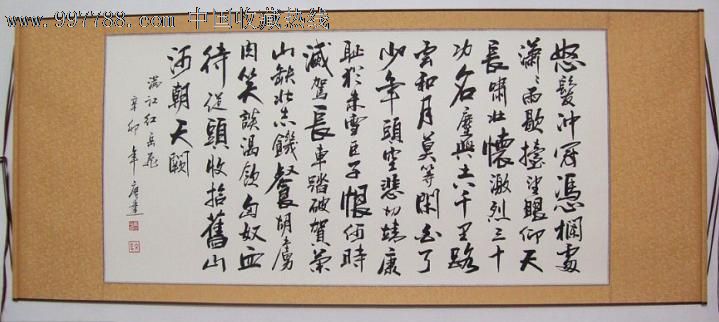 www.997788.com 中国收藏热线
怒髮沖冠憑欄處
瀟〻雨歇擡望眼仰天
長嘯壯懷激烈三十
功名塵與土八千里路
雲和月莫等閑白了
少年頭空悲切靖康
恥猶未雪臣子恨何時
滅駕長車踏破賀蘭
山缺壯志饑餐胡虜
肉笑談渴飲匈奴血
待從頭收拾舊山
河朝天闕
滿江紅岳飛
辛卯年